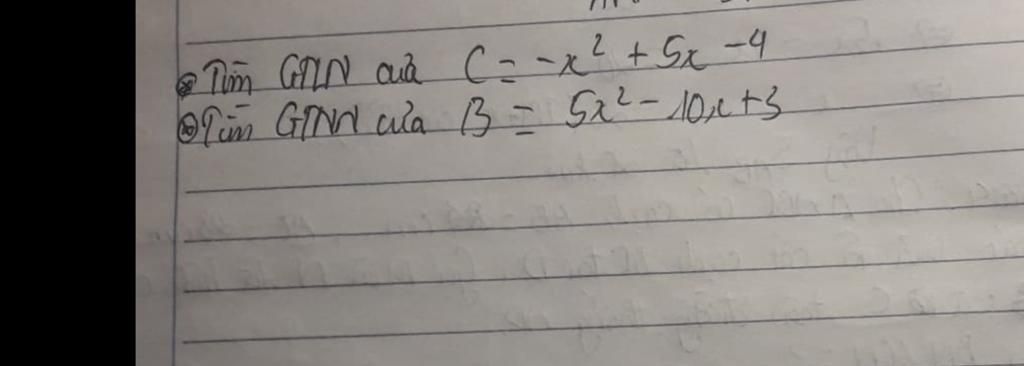 Tìm GTLN của C = -x² + 5x - 4
Tìm GTNN của B = 5x² - 10x + 3